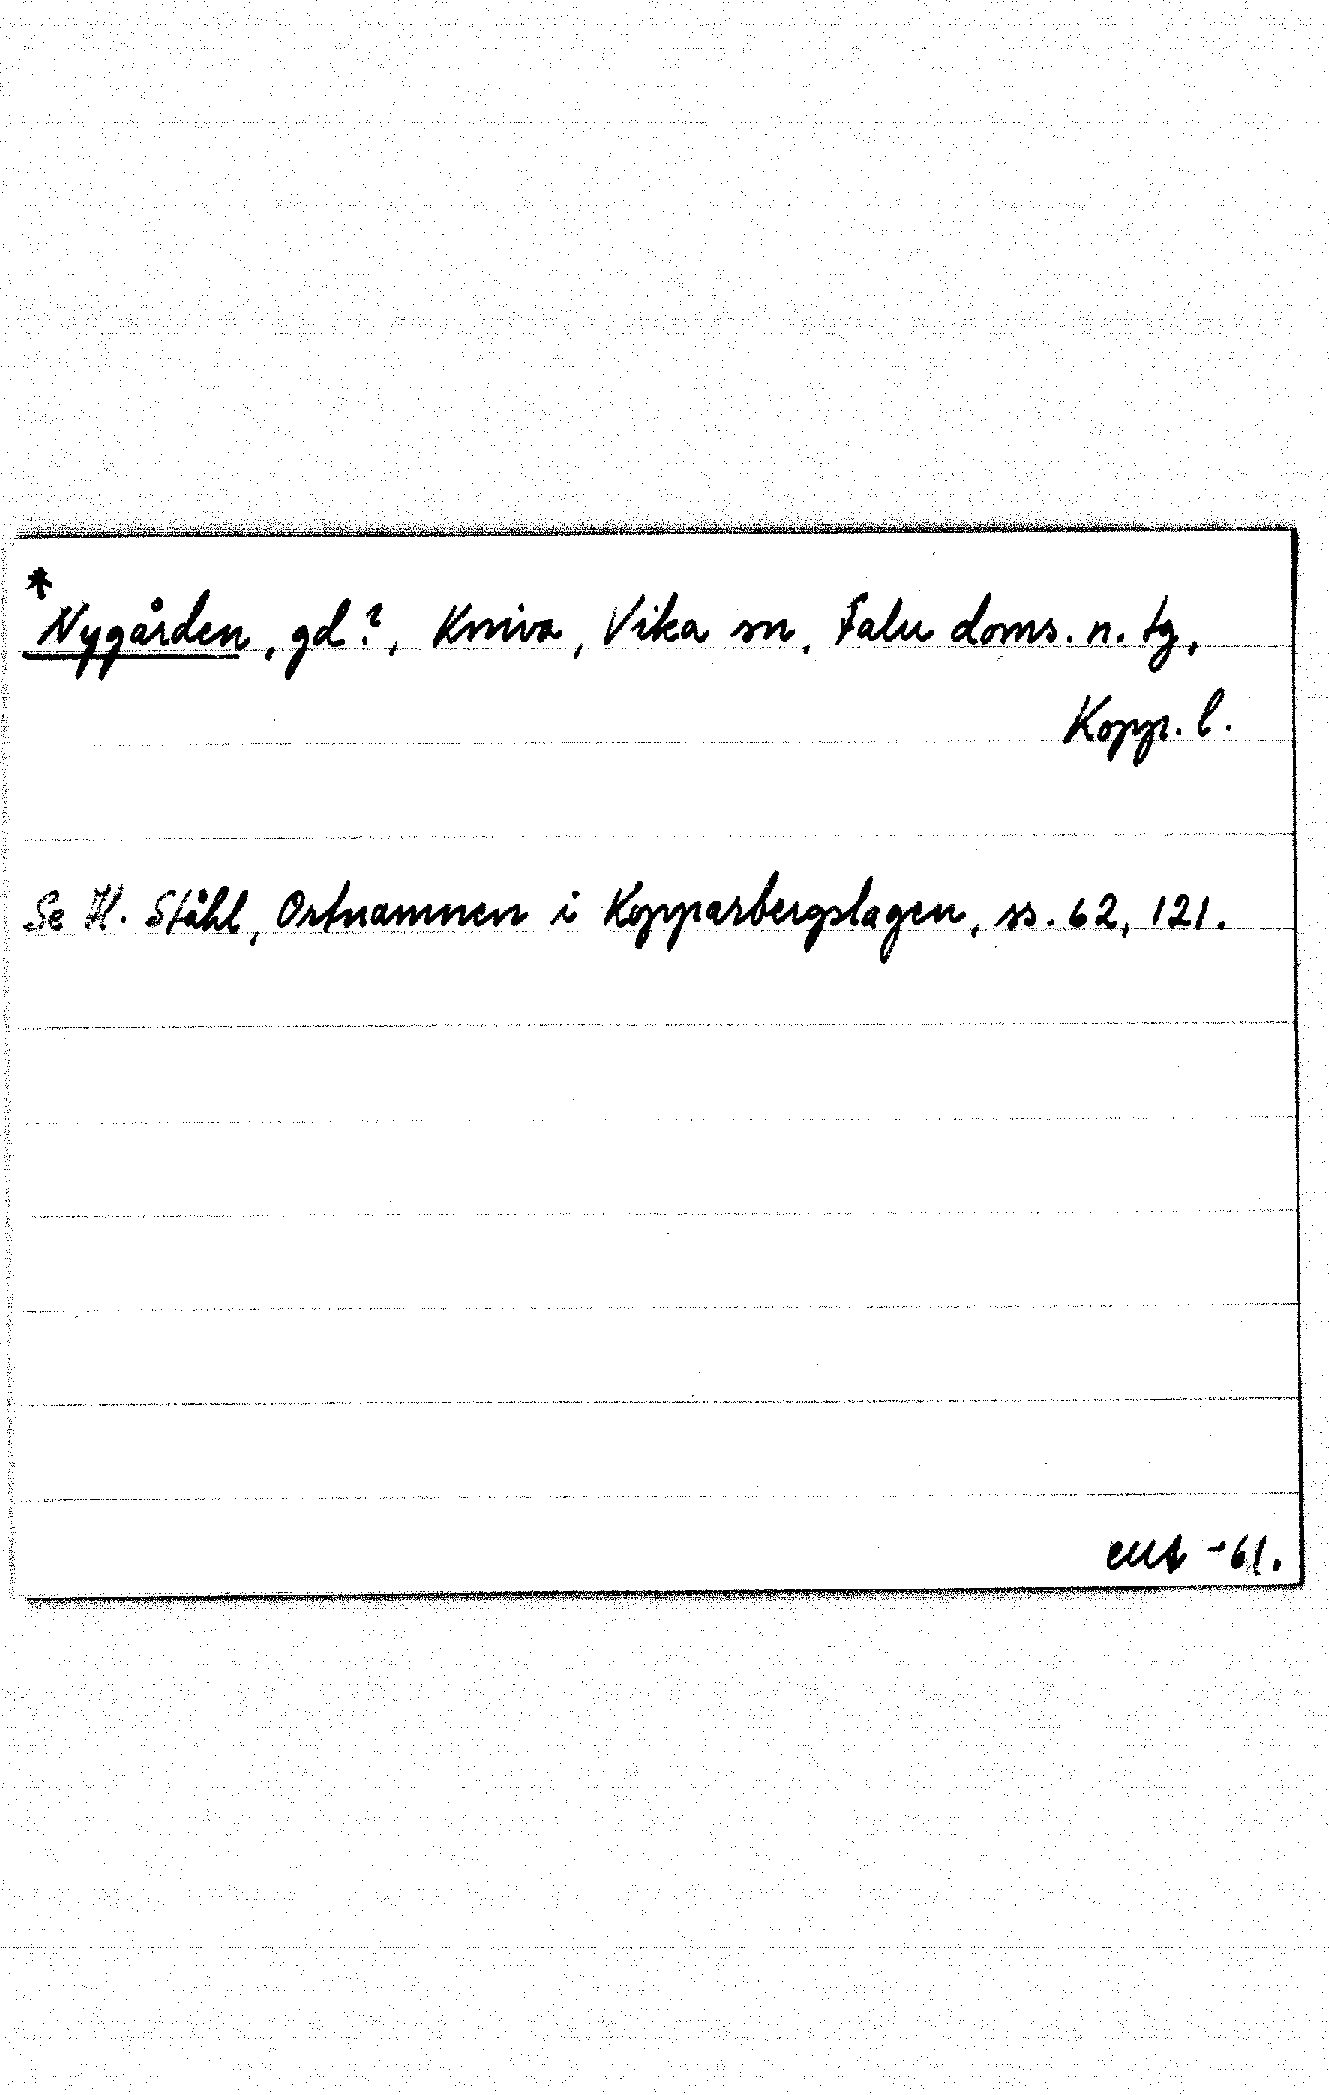 *Nygården, gd?, Kniva, Vika sn, Falu doms. n. tg,
Kopp. l.
Se H. Ståhl, Ortnamnen i Kopparbergslagen, ss. 62, 121.
-61.